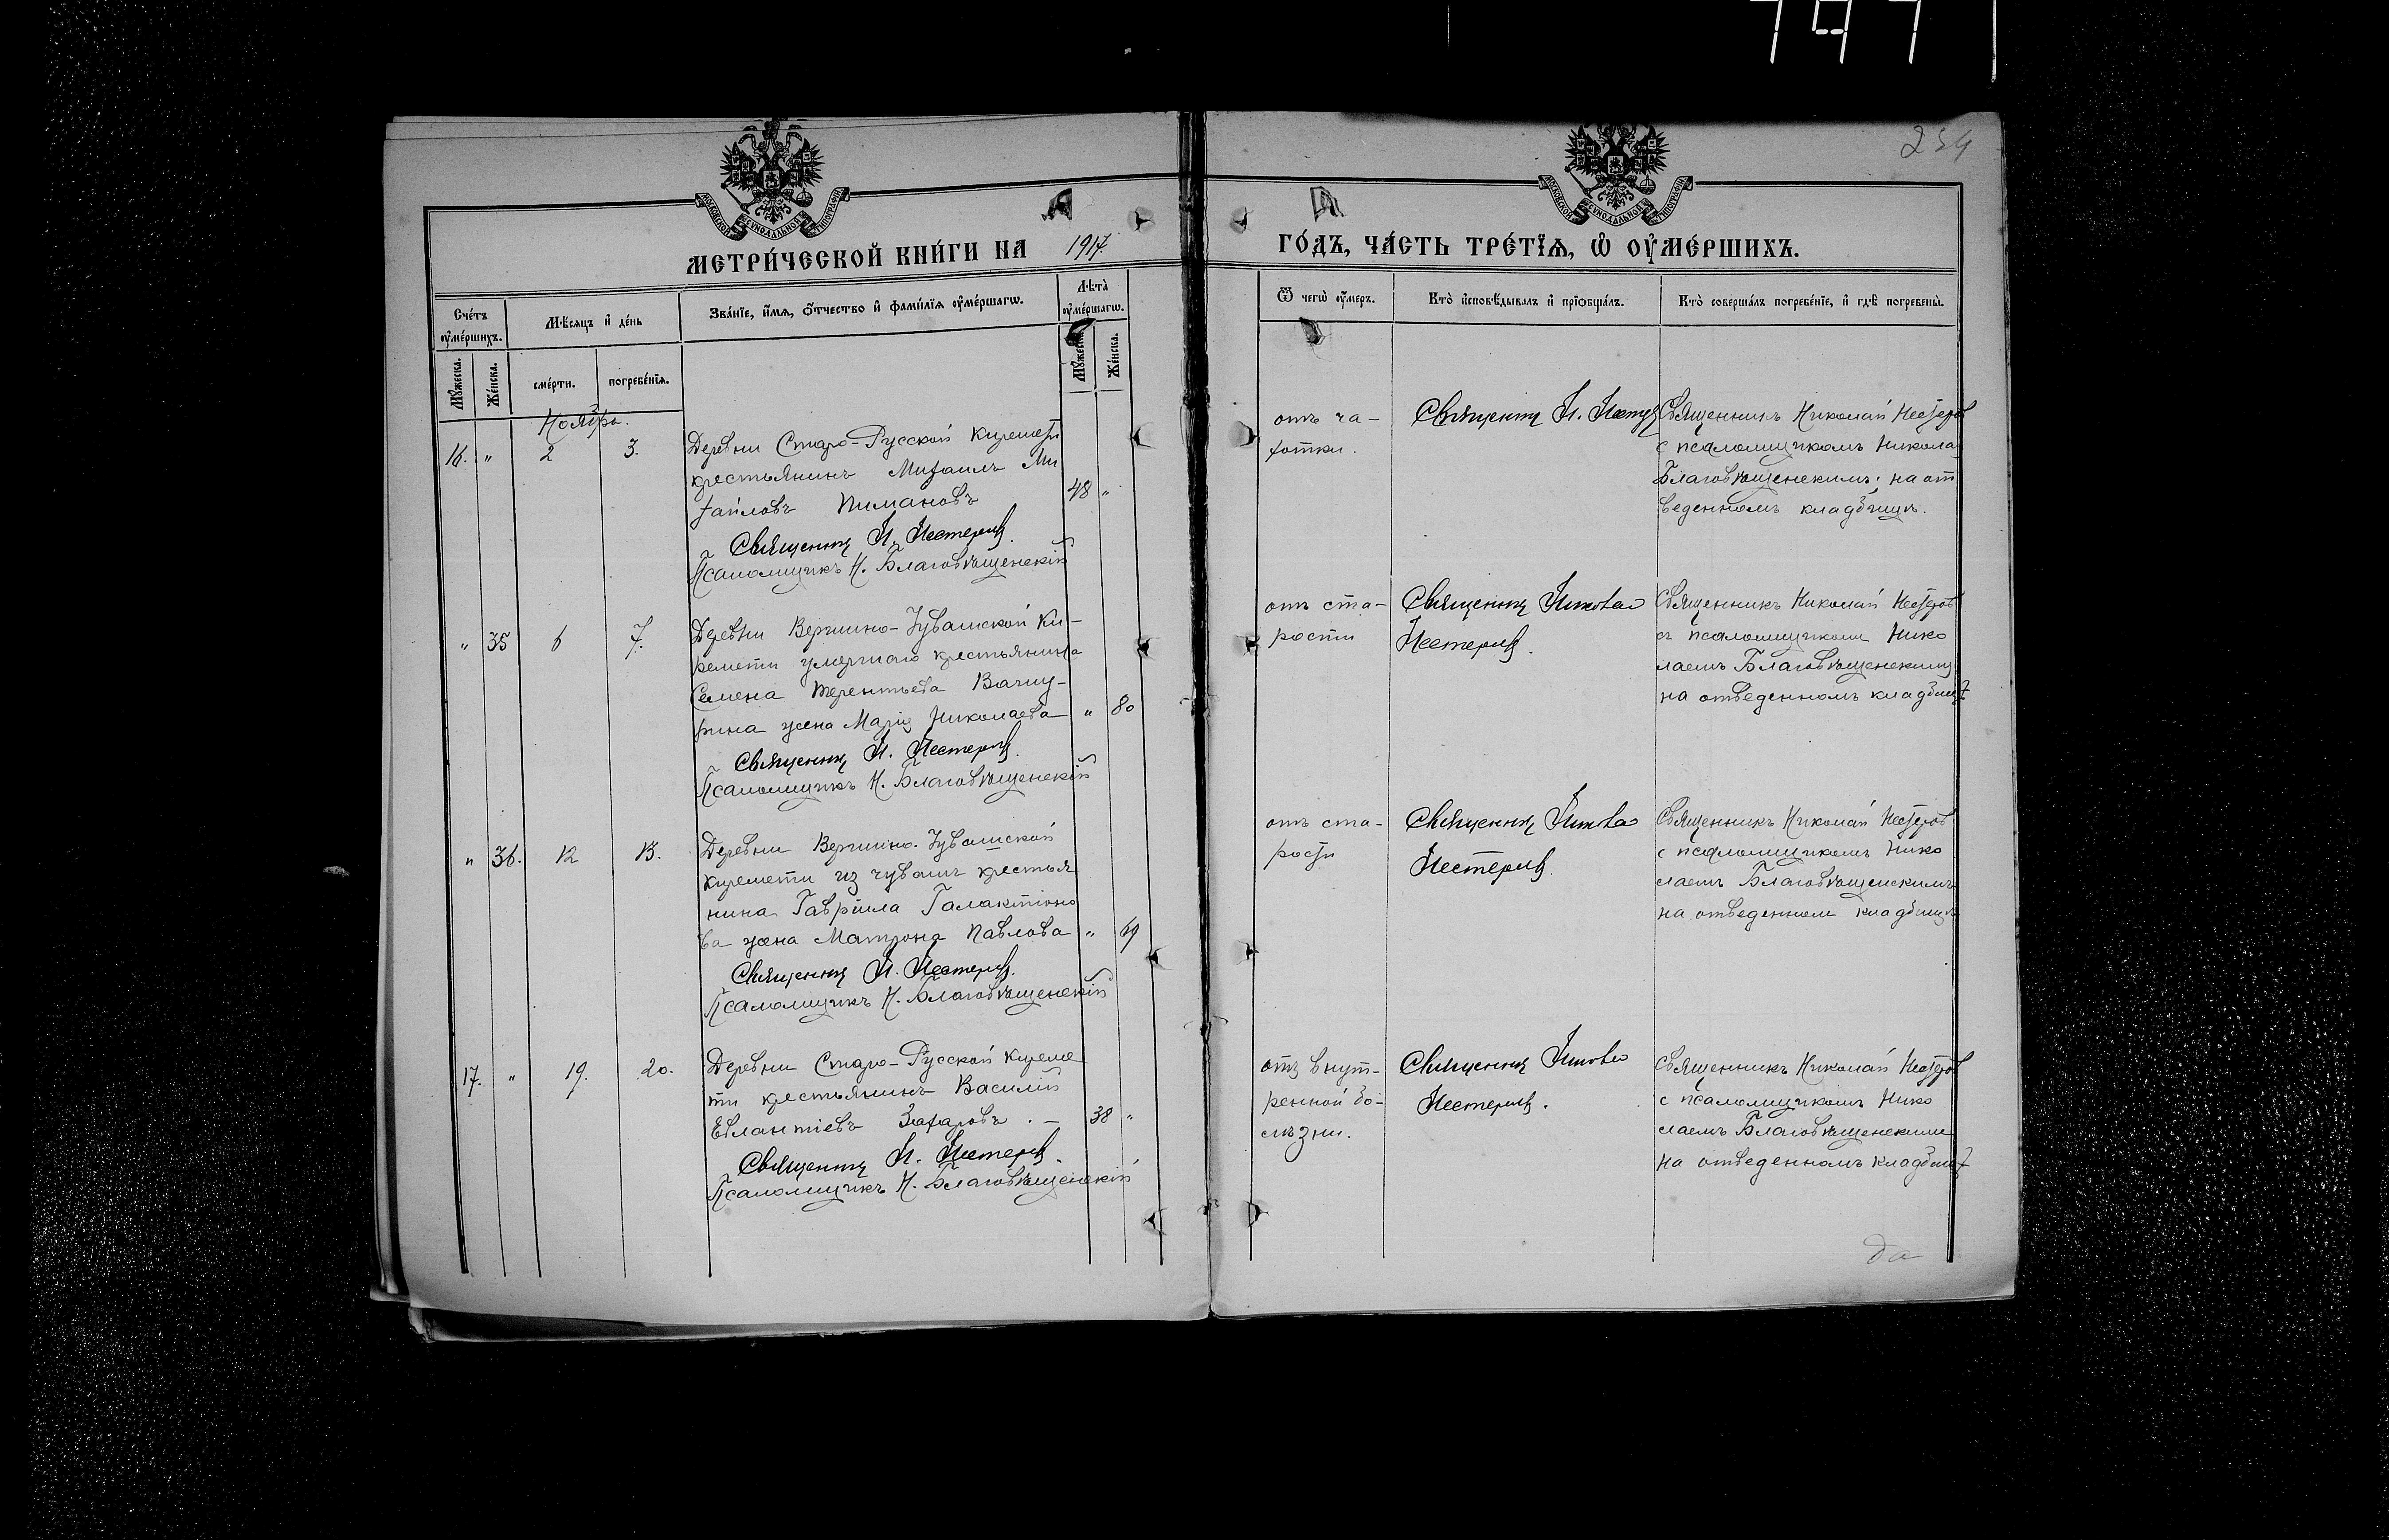 254
МЕТРИ́ЧЕСКОЙ КНИ́ГИ НА 1917.
ГО́ДЪ, ЧА́СТЬ ТРЕ́ТЇѦ, Ѡ҆ ОУ҆МЕ́РШИХЪ.
Сче́тъ оу҆ме́ршихъ.
Мѣ́сяцъ и҆ де́нь
Зва́нїе, и҆́мѧ, ѻ҆́тчество и҆ фами́лїѧ оу҆ме́ршагѡ.
Лѣ́та̀ оу҆ме́ршагѡ.
Ѿ чегѡ̀ оу҆́меръ.
Кто̀ и҆сповѣ́дывалъ и҆ прїѻбща́лъ.
Кто̀ соверша́лъ погребе́нїе, и҆ гдѣ̀ погребены̀.
Мꙋ́жеска.
Же́нска.
сме́рти.
погребе́нїѧ.
Мꙋ́жеска.
Же́нска.
Ноябрь.
16. " 2 3.
Деревни Старо-Русской Киремети
крестьянинъ Михаилъ Ми
хайловъ Пимановъ 48 "
Священник Н. Нестеров.
Псаломщикъ Н. Благовѣщенскій
отъ ча-
хотки.
Священник Н. Нестер
Священникъ Николай Нестеров
с псаломщикомъ Никола
Благовѣщенскимъ; на от
веденномъ кладбищѣ.
" 35 6 7.
Деревни Вершино-Чувашской Ки-
ремети умершаго крестьянина
Семена Терентьева Вачшу-
рина жена Марія Николаева " 80
Священник Н. Нестеров.
Псаломщикъ Н. Благовѣщенскій
отъ ста-
рости
Священник Николай
Нестеров.
Священникъ Николай Нестеров
съ псаломщикомъ Нико
лаемъ Благовѣщенским
на отведенномъ кладбищѣ
" 36. 12 13.
Деревни Вершино-Чувашской
Киремети из чувашъ крестья
нина Гавріила Галактіоно
ва жена Матрона Павлова " 69
Священник Н. Нестеров.
Псаломщикъ Н. Благовѣщенскій
отъ ста-
рости
Священник Николай
Нестеров.
Священникъ Николай Нестеров
с псаломщикомъ Нико
лаемъ Благовѣщенскимъ
на отведенном кладбищѣ
17. " 19. 20.
Деревни Старо-Русской Киреме
ти крестьянинъ Василій
Евлантіевъ Захаровъ. — 38 "
Священник Н. Нестеров.
Псаломщикъ Н. Благовѣщенскій
отъ внут-
ренной бо-
лѣзни.
Священник Николай
Нестеров.
Священникъ Николай Нестеров
с псаломщикомъ Нико
лаемъ Благовѣщенским
на отведенномъ кладбищѣ
да